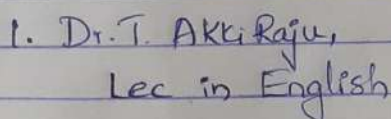 1. Dr. T. AKKi Raju,
Lec in English